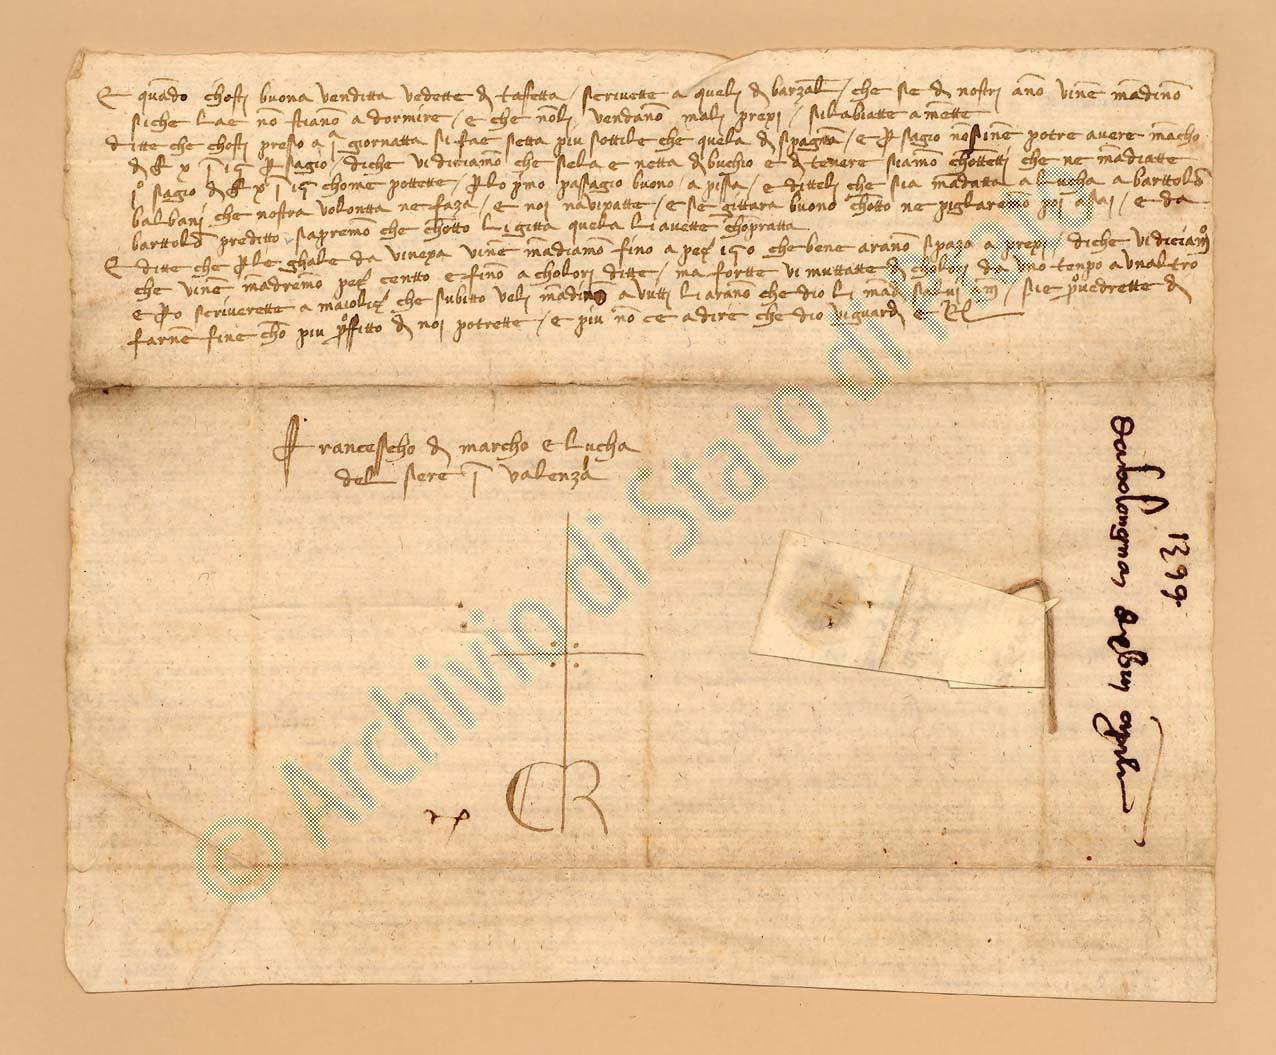 E quādo chostj buona venditta vedette dj taffetta / scrivette a quelj dj barzalᵃ / che se dj nostrj ano vine mādino
siche lae no stiano a dormire / e che nolj vendano malj prepi / silabiatte a mette
ditte che chostj presso a jᵃ giornatta si fae setta piu sottile che quela dj spagna / e p sagio no sine potre avere macho
p sagio / diche vi diciamo che sela e netta dj buchio e dj tenere siamo chontetti che ne mādiatte
jᵒ sagio chome pottette / p lo pmo passagio buono / a pissa / e dittelj che sia mādatta a Lucha a barttolo
balbanj che nostra volontta ne faza / e noi navisatte / e se gittara buono chotto ne pigliaremo poi asai / e da
barttolo preditto sapremo che chotto li gitta quela li avette chopratta
E ditte che p le ghale da vinexa vine mādiamo fino a peze che bene arano spazo a prepi / diche vi diciamo
che vine mādremo peze centto e fino a cholori ditte / ma fortte vi muttatte dj cholori da uno tenpo a unaltro
e po scriverette a maiolicha che subitto velj mādino a vutti li arano che dio li mādj salvi / sie pvedrette dj
farne fine cho piu pfitto dj noi potrette / e piu no ce a dire che dio vi guardj
Francesscho dj marcho e Lucha
del sere j valenza
CR
1399
da bolongna
aprile
© Archivio di Stato di Prato